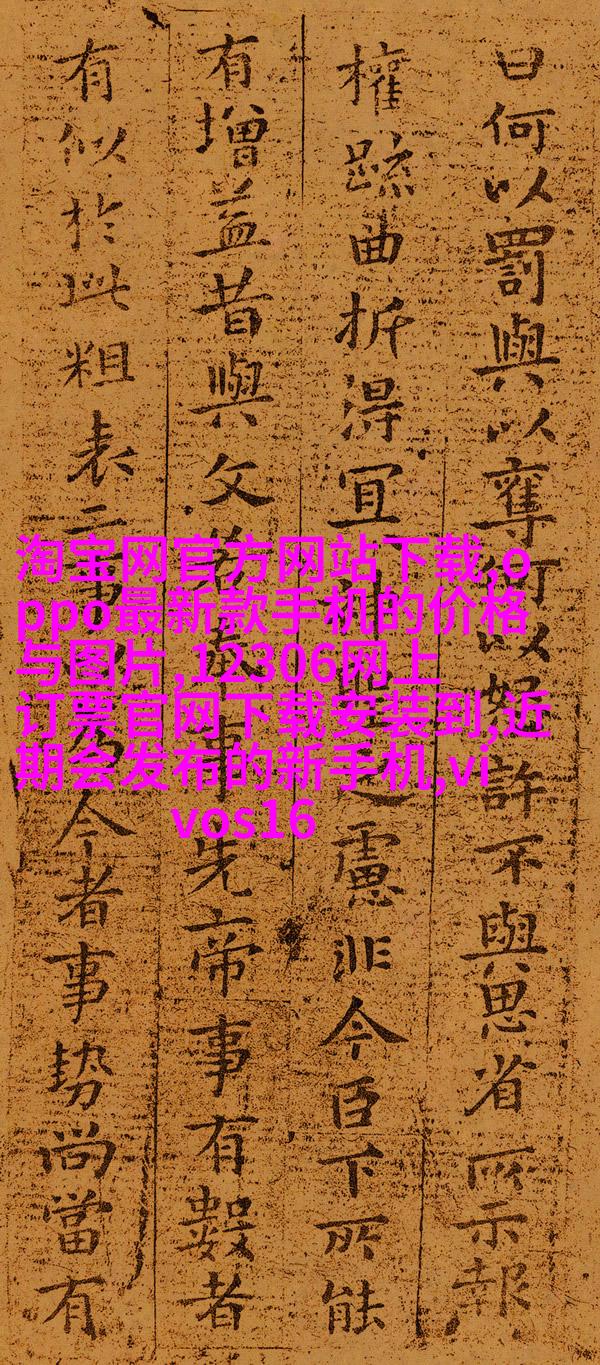 曰何以罰與以奪何以恕許不與思省所示報
權疏曲折得宜神聖之慮非今臣下所能
有增益昔與文若奉事先帝事有數者
有似於此粗表二事以為今者事勢尚當有
淘宝网官方网站下载,o
ppo最新款手机的价格
与图片,12306网上
订票官网下载安装到,近
期会发布的新手机,vi
vos16